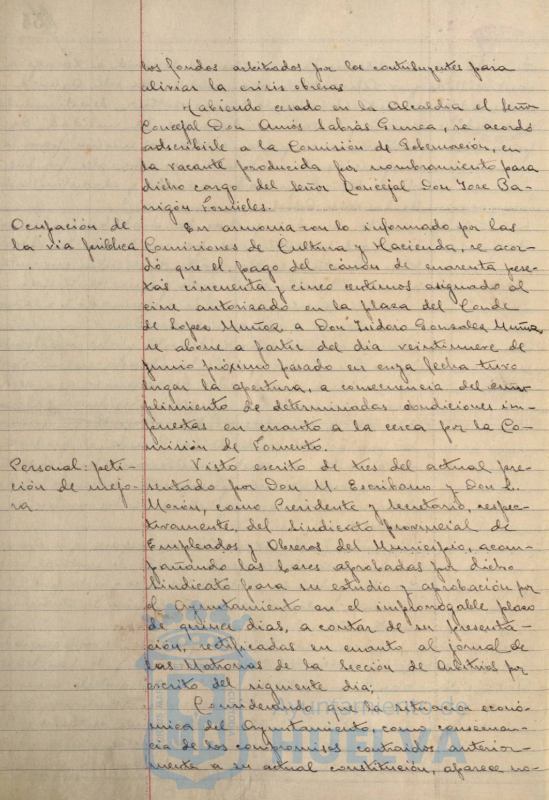 los fondos arbitrados por los contribuyentes para
aliviar la crisis obrera
Habiendo cesado en la Alcaldía el Señor
Concejal Don Amós Sabrás Gurrea, se acordó
adscribirle a la Comisión de Gobernación, en
la vacante producida por nombramiento para
dicho cargo del Señor Concejal Don Jose Ba-
rrigón Fornieles.
Ocupación de
la via pública
En armonia con lo informado por las
Comisiones de Cultura y Hacienda, se acor-
dó que el pago del cánon de cuarenta pese-
tas cincuenta y cinco centimos asignado al
cine autorizado en la plaza del Conde
de Lopez Muñoz a Don Isidoro Gonzalez Muñiz,
se abone a partir del dia veintinueve de
junio próximo pasado en cuya fecha tuvo
lugar la apertura, a consecuencia del cum-
plimiento de determinadas condiciones im-
puestas en cuanto a la cerca por la Co-
misión de Fomento.
Personal: peti-
ción de mejo-
ra
Visto escrito de tres del actual pre-
sentado por Don M. Escribano y Don L.
Morón, como Presidente y Secretario, respec-
tivamente, del Sindicato provincial de
Empleados y Obreros del Municipio, acom-
pañando las bases aprobadas por dicho
Sindicato para su estudio y aprobación por
el Ayuntamiento en el improrrogable plazo
de quince dias, a contar de su presenta-
ción, rectificadas en cuanto al jornal de
las Matronas de la Sección de Arbitrios por
escrito del siguiente dia;
Considerando que la situación econó-
mica del Ayuntamiento como consecuen-
cia de los compromisos contraidos anterior-
mente a su actual constitución, aparece no-
Ayuntamiento de
HUELVA